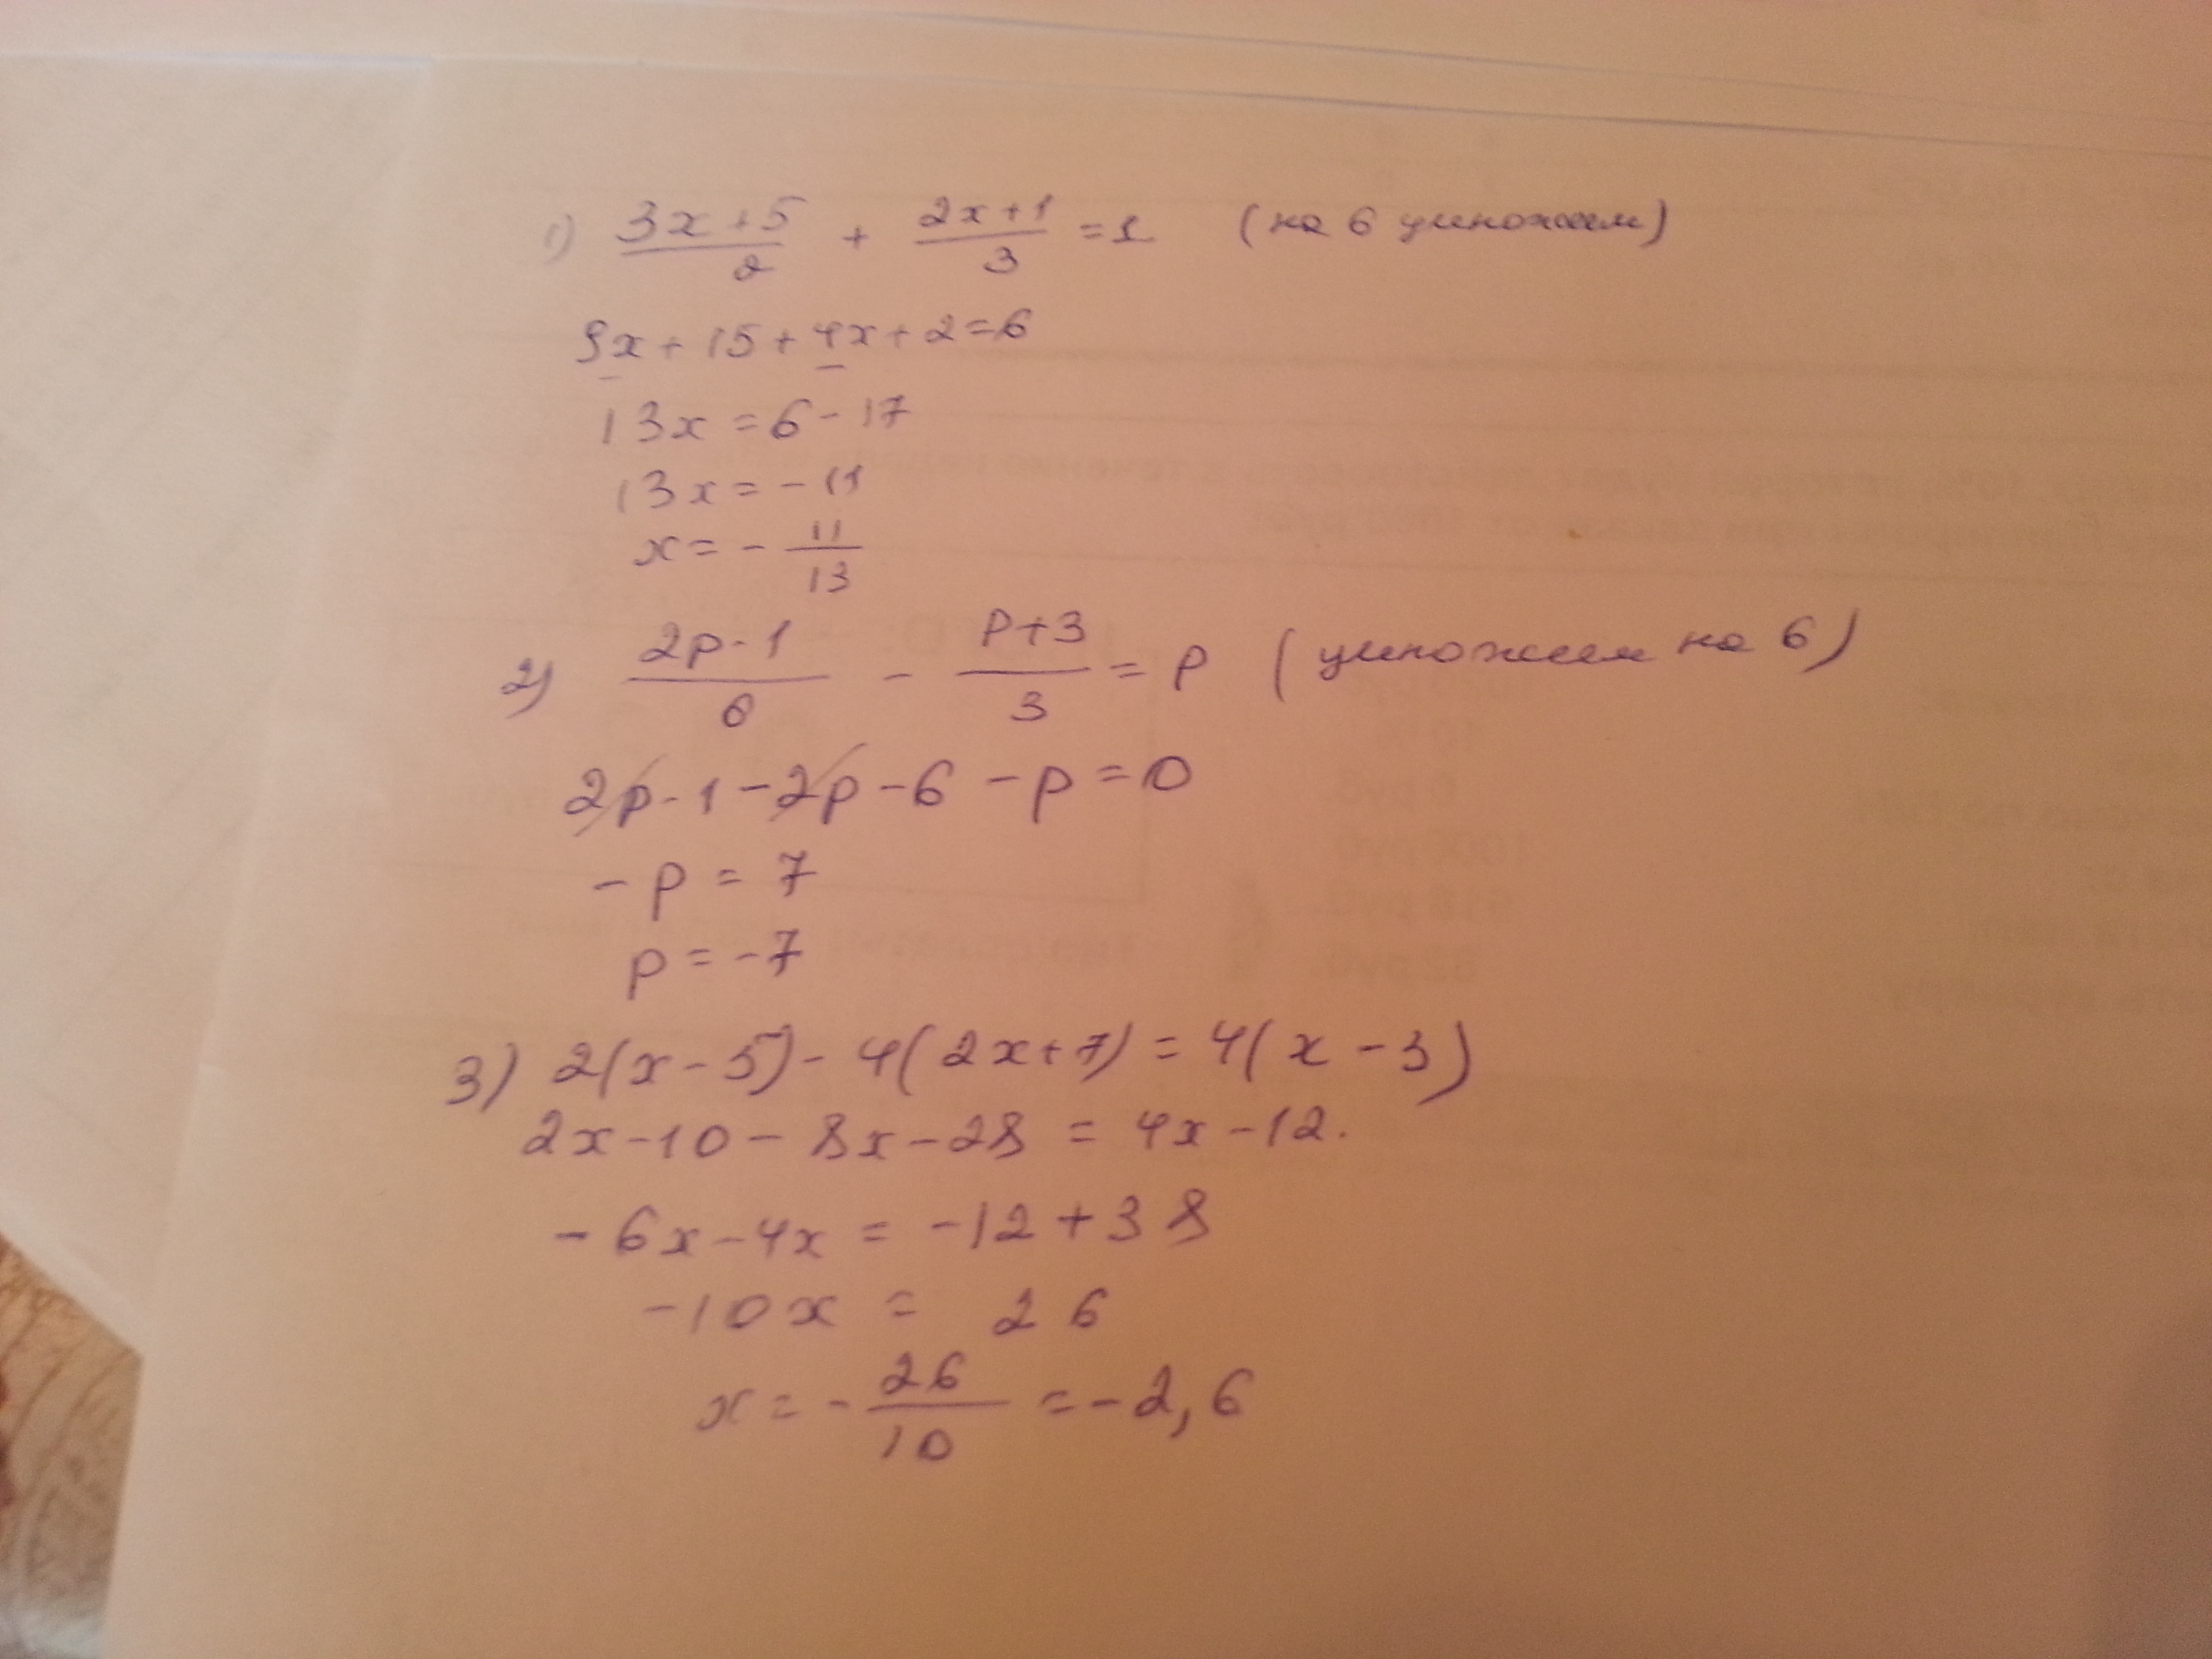 1) (3x+5)/2 + (2x+1)/3 = 1 (на 6 умножаем)
9x + 15 + 4x + 2 = 6
13x = 6 - 17
13x = - 11
x = - 11/13
2) (2p-1)/6 - (p+3)/3 = p (умножаем на 6)
2p - 1 - 2p - 6 - p = 0
- p = 7
p = - 7
3) 2(x - 5) - 4(2x+7) = 4(x - 3)
2x - 10 - 8x - 28 = 4x - 12.
- 6x - 4x = - 12 + 38
- 10x = 26
x = - 26/10 = - 2,6